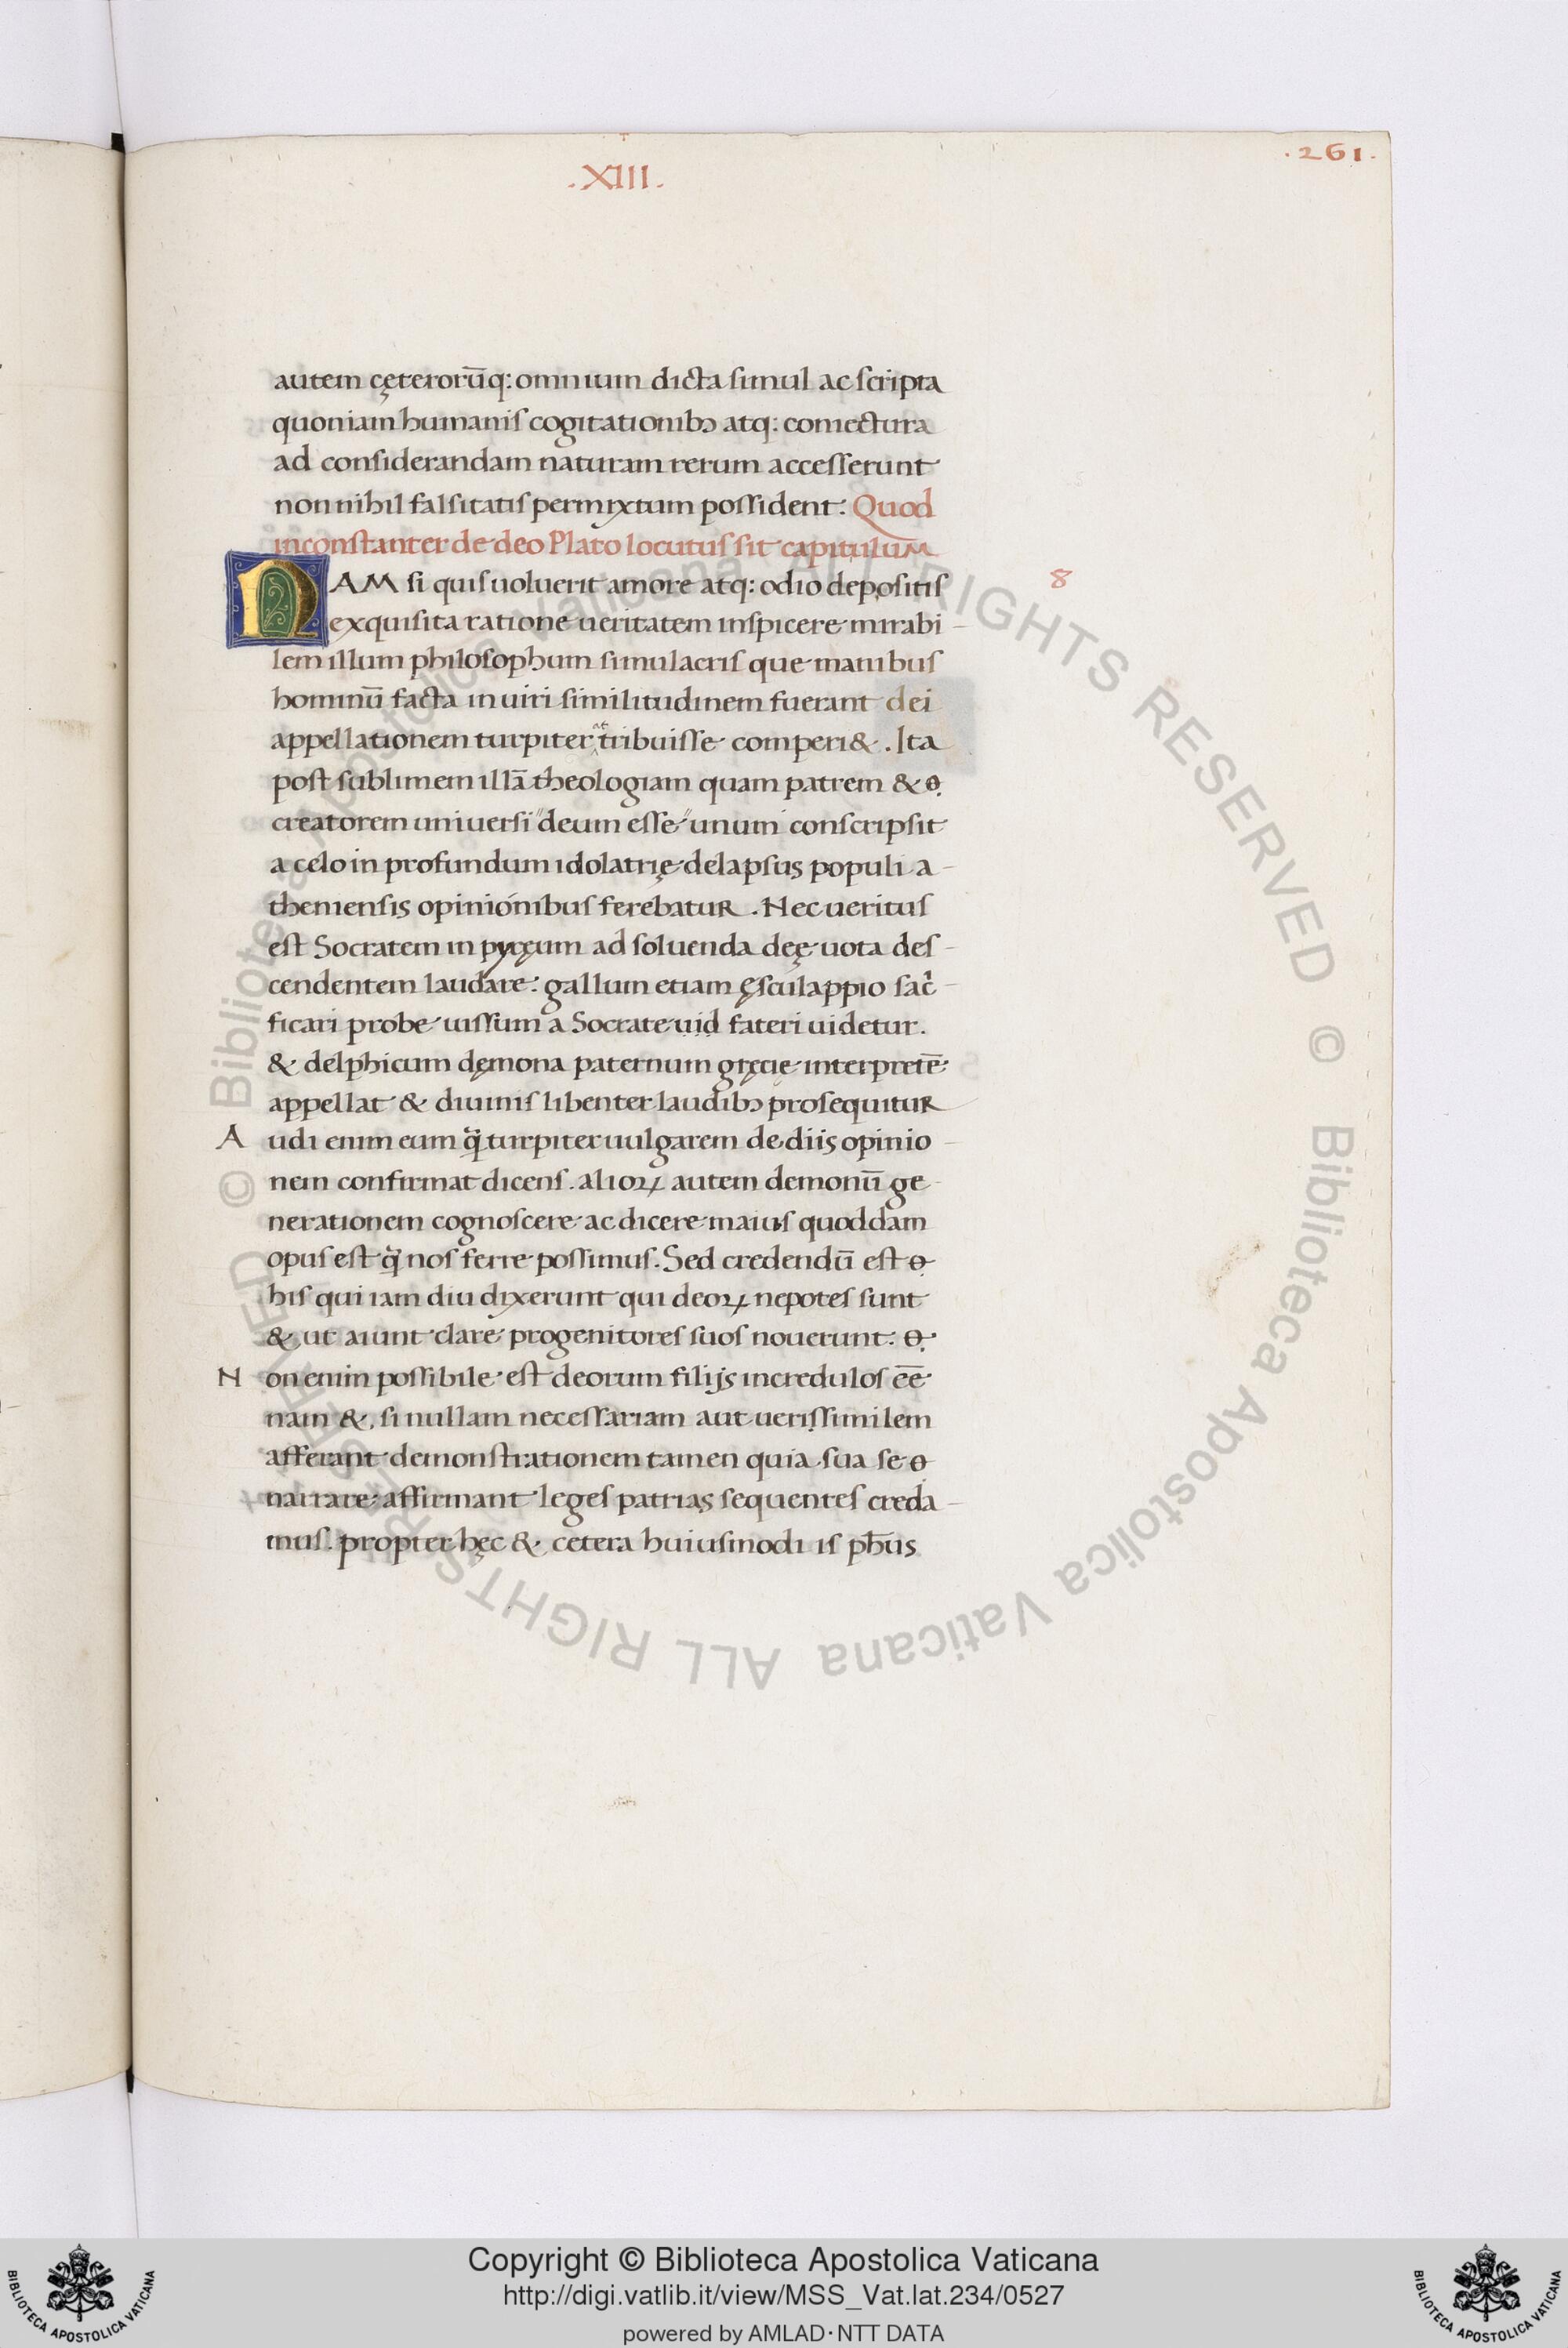 .XIII.
.261.
autem cęterorūq: omnium dicta simul ac scripta
quoniam humanis cogitationibɔ atq: coniectura
ad considerandam naturam rerum accesserunt
non nihil falsitatis permixtum possident: Quod
inconstanter de deo Plato locutus sit capitulum
NAM si quis uoluerit amore atq: odio depositis
8
exquisita ratione ueritatem inspicere mirabi-
lem illum philosophum simulacris que manibus
hominū facta in uiri similitudinem fuerant dei
appellationem turpiter attribuisse comperi&. Ita
post sublimem illā theologiam quam patrem &
creatorem uniuersi deum esse unum conscripsit
a celo in profundum idolatrię delapsus populi a-
theniensis opinionibus ferebatur. Nec ueritus
est Socratem in pyręum ad soluenda deę uota des-
cendentem laudare: gallum etiam ęsculappio sac̄-
ficari probe iussum a Socrate uid fateri uidetur.
& delphicum dęmona paternum gręcię interpretē
appellat & diuinis libenter laudibɔ prosequitur
Audi enim eum q̄ turpiter uulgarem de diis opinio-
nem confirmat dicens. alioꝝ autem demonū ge-
nerationem cognoscere ac dicere maius quoddam
opus est q̄ nos ferre possimus. Sed credendū est
his qui iam diu dixerunt qui deoꝝ nepotes sunt
& ut aiunt clare progenitores suos nouerunt:
Non enim possibile est deorum filijs incredulos eē
nam & si nullam necessariam aut uerissimilem
afferant demonstrationem tamen quia sua se
narrare affirmant leges patrias sequentes creda-
mus. propter hęc & cetera huiusmodi is ph̄us
© Biblioteca Apostolica Vaticana ALL RIGHTS RESERVED © Biblioteca Apostolica Vaticana ALL RIGHTS RESERVED
Copyright © Biblioteca Apostolica Vaticana
http://digi.vatlib.it/view/MSS_Vat.lat.234/0527
powered by AMLAD·NTT DATA
BIBLIOTECA APOSTOLICA VATICANA
BIBLIOTECA APOSTOLICA VATICANA